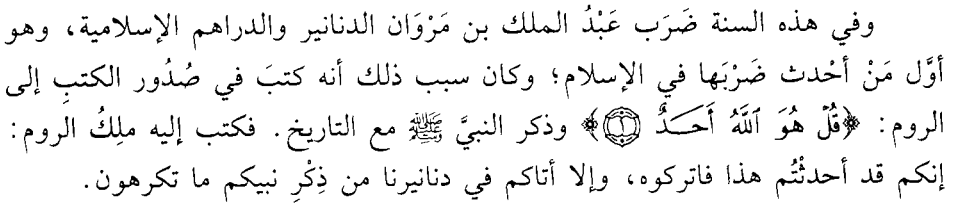 وفي هذه السنة ضَرَب عَبْدُ الملك بن مَرْوَان الدنانير والدراهم الإسلامية، وهو
أوَّل مَنْ أحْدث ضَرْبَها في الإسلام؛ وكان سبب ذلك أنه كتبَ في صُدُور الكتبِ إلى
الروم: ﴿قُلْ هُوَ ٱللَّهُ أَحَـدٌ ۝١﴾ وذكر النبيَّ ﷺ مع التاريخ. فكتب إليه ملِكُ الروم:
إنكم قد أحدثْتُم هذا فاتركوه، وإلا أتاكم في دنانيرنا من ذِكْرِ نبيكم ما تكرهون.